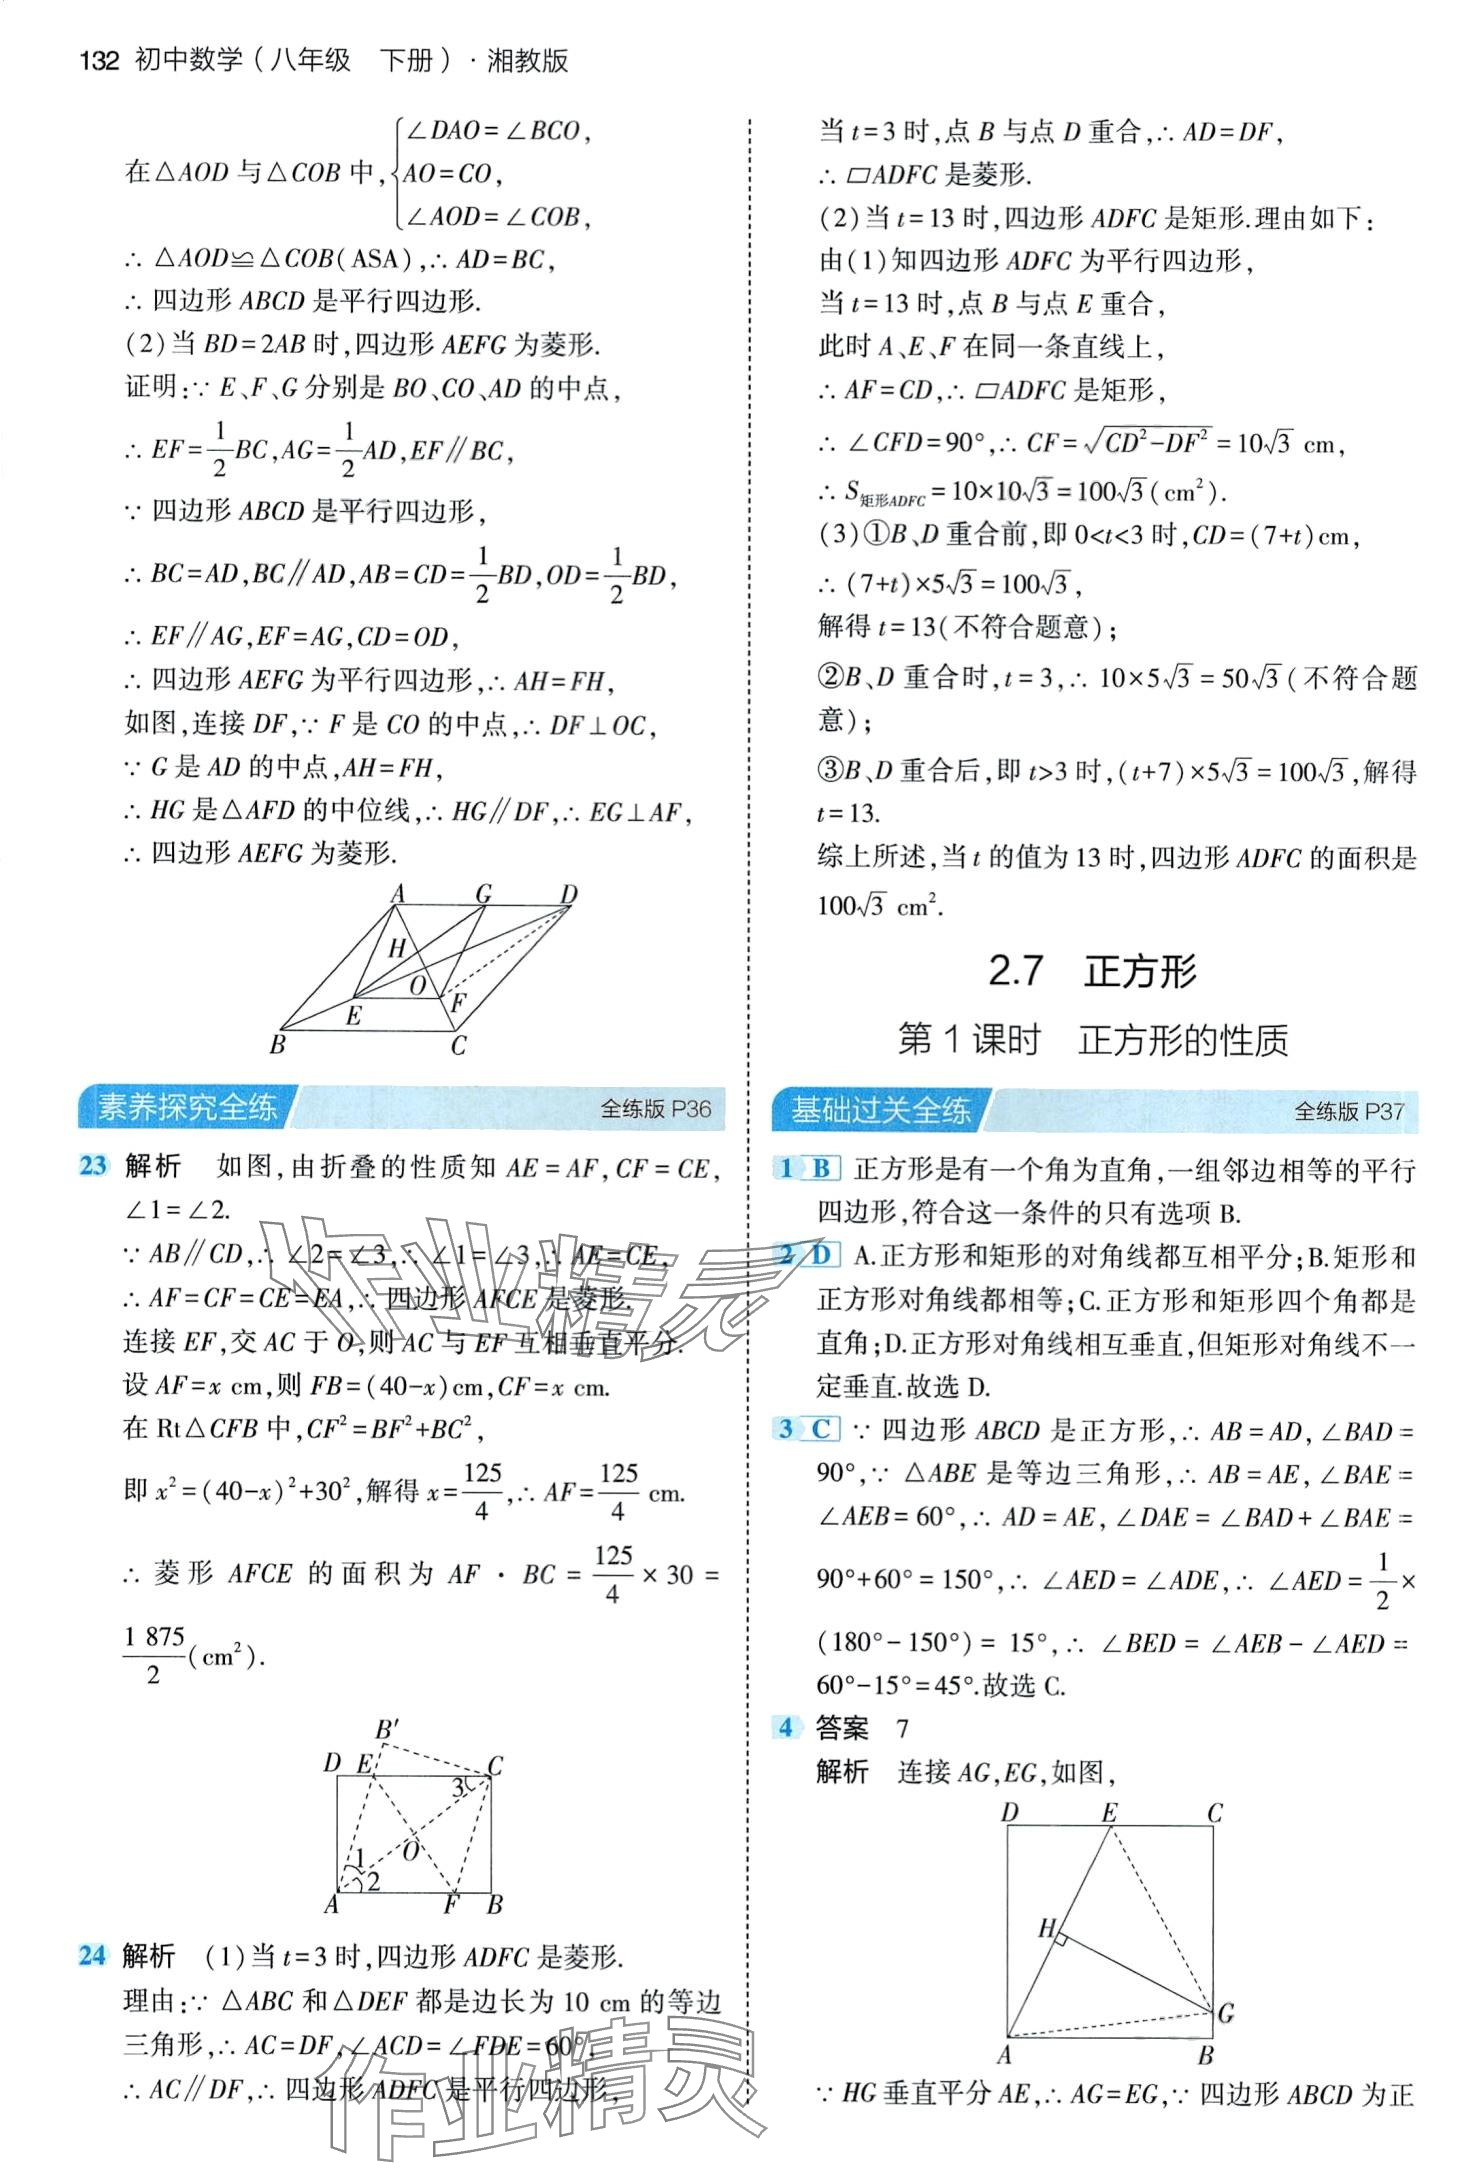 132 初中数学(八年级 下册)·湘教版
在△AOD 与△COB 中,{∠DAO=∠BCO,
AO=CO,
∠AOD=∠COB,
∴ △AOD≌△COB(ASA),∴ AD=BC,
∴ 四边形 ABCD 是平行四边形.
(2)当 BD=2AB 时,四边形 AEFG 为菱形.
证明:∵ E、F、G 分别是 BO、CO、AD 的中点,
∴ EF=1/2BC,AG=1/2AD,EF∥BC,
∵ 四边形 ABCD 是平行四边形,
∴ BC=AD,BC∥AD,AB=CD=1/2BD,OD=1/2BD,
∴ EF∥AG,EF=AG,CD=OD,
∴ 四边形 AEFG 为平行四边形,∴ AH=FH,
如图,连接 DF,∵ F 是 CO 的中点,∴ DF⊥OC,
∵ G 是 AD 的中点,AH=FH,
∴ HG 是△AFD 的中位线,∴ HG∥DF,∴ EG⊥AF,
∴ 四边形 AEFG 为菱形.
A G D
H
O
E F
B C
素养探究全练 全练版 P36
23 解析 如图,由折叠的性质知 AE=AF,CF=CE,
∠1=∠2.
∵ AB∥CD,∴ ∠2=∠3,∴ ∠1=∠3,∴ AE=CE,
∴ AF=CF=CE=EA,∴ 四边形 AFCE 是菱形.
连接 EF,交 AC 于 O,则 AC 与 EF 互相垂直平分.
设 AF=x cm,则 FB=(40-x)cm,CF=x cm.
在 Rt△CFB 中,CF²=BF²+BC²,
即 x²=(40-x)²+30²,解得 x=125/4,∴ AF=125/4 cm.
∴ 菱形 AFCE 的面积为 AF·BC=125/4×30=
1 875/2(cm²).
B′
D E C
3
O
1
2
A F B
24 解析 (1)当 t=3 时,四边形 ADFC 是菱形.
理由:∵ △ABC 和△DEF 都是边长为 10 cm 的等边
三角形,∴ AC=DF,∠ACD=∠FDE=60°,
∴ AC∥DF,∴ 四边形 ADFC 是平行四边形,
当 t=3 时,点 B 与点 D 重合,∴ AD=DF,
∴ ▱ADFC 是菱形.
(2)当 t=13 时,四边形 ADFC 是矩形.理由如下:
由(1)知四边形 ADFC 为平行四边形,
当 t=13 时,点 B 与点 E 重合,
此时 A、E、F 在同一条直线上,
∴ AF=CD,∴ ▱ADFC 是矩形,
∴ ∠CFD=90°,∴ CF=√(CD²-DF²)=10√3 cm,
∴ S矩形ADFC=10×10√3=100√3(cm²).
(3)①B、D 重合前,即 0<t<3 时,CD=(7+t)cm,
∴ (7+t)×5√3=100√3,
解得 t=13(不符合题意);
②B、D 重合时,t=3,∴ 10×5√3=50√3(不符合题
意);
③B、D 重合后,即 t>3 时,(t+7)×5√3=100√3,解得
t=13.
综上所述,当 t 的值为 13 时,四边形 ADFC 的面积是
100√3 cm².
2.7 正方形
第 1 课时 正方形的性质
基础过关全练 全练版 P37
1 B 正方形是有一个角为直角,一组邻边相等的平行
四边形,符合这一条件的只有选项 B.
2 D A.正方形和矩形的对角线都互相平分;B.矩形和
正方形对角线都相等;C.正方形和矩形四个角都是
直角;D.正方形对角线相互垂直,但矩形对角线不一
定垂直.故选 D.
3 C ∵ 四边形 ABCD 是正方形,∴ AB=AD,∠BAD=
90°,∵ △ABE 是等边三角形,∴ AB=AE,∠BAE=
∠AEB=60°,∴ AD=AE,∠DAE=∠BAD+∠BAE=
90°+60°=150°,∴ ∠AED=∠ADE,∴ ∠AED=1/2×
(180°-150°)=15°,∴ ∠BED=∠AEB-∠AED=
60°-15°=45°.故选 C.
4 答案 7
解析 连接 AG,EG,如图,
D E C
H
G
A B
∵ HG 垂直平分 AE,∴ AG=EG,∵ 四边形 ABCD 为正
作业精灵
作业精灵